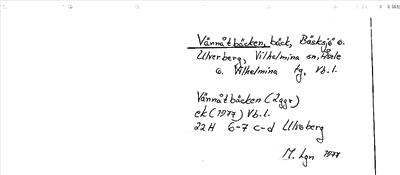 Vännåtbäcken, bäck, Bäsksjö o.
Ulverberg, Vilhelmina sn,
o. Vilhelmina tg, Vb.l.
Vännåtbäcken (2ggr)
ek (1977) Vb.l.
22H 6-7 c-d Ulvsberg
M. Lgn 1977